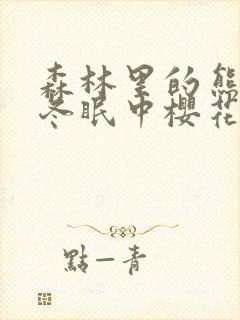 森林里的熊
冬眠中櫻花
點一青